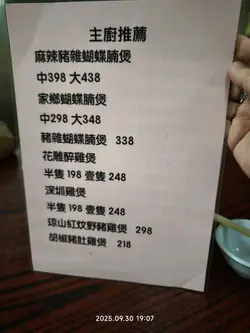 主廚推薦
麻辣豬雜蝴蝶腩煲
中398 大438
家鄉蝴蝶腩煲
中298 大348
豬雜蝴蝶腩煲 338
花雕醉雞煲
半隻 198 壹隻 248
深圳雞煲
半隻 198 壹隻 248
琼山紅炆野豬雞煲 298
胡椒豬肚雞煲 218
2025.09.30 19:07